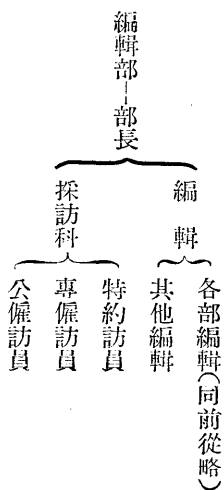 編輯部——部長
編輯
各部編輯(同前從略)
其他編輯
採訪科
特約訪員
專僱訪員
公僱訪員